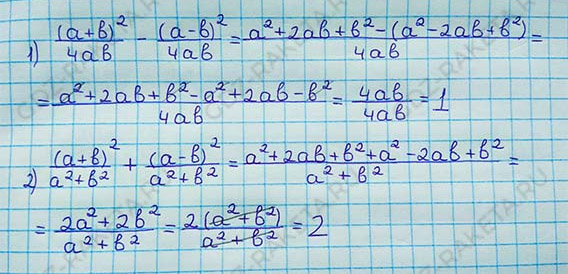 1) (a+b)²/4ab - (a-b)²/4ab = a²+2ab+b²-(a²-2ab+b²)/4ab =
= a²+2ab+b²-a²+2ab-b²/4ab = 4ab/4ab = 1
2) (a+b)²/a²+b² + (a-b)²/a²+b² = a²+2ab+b²+a²-2ab+b²/a²+b² =
= 2a²+2b²/a²+b² = 2(a²+b²)/a²+b² = 2